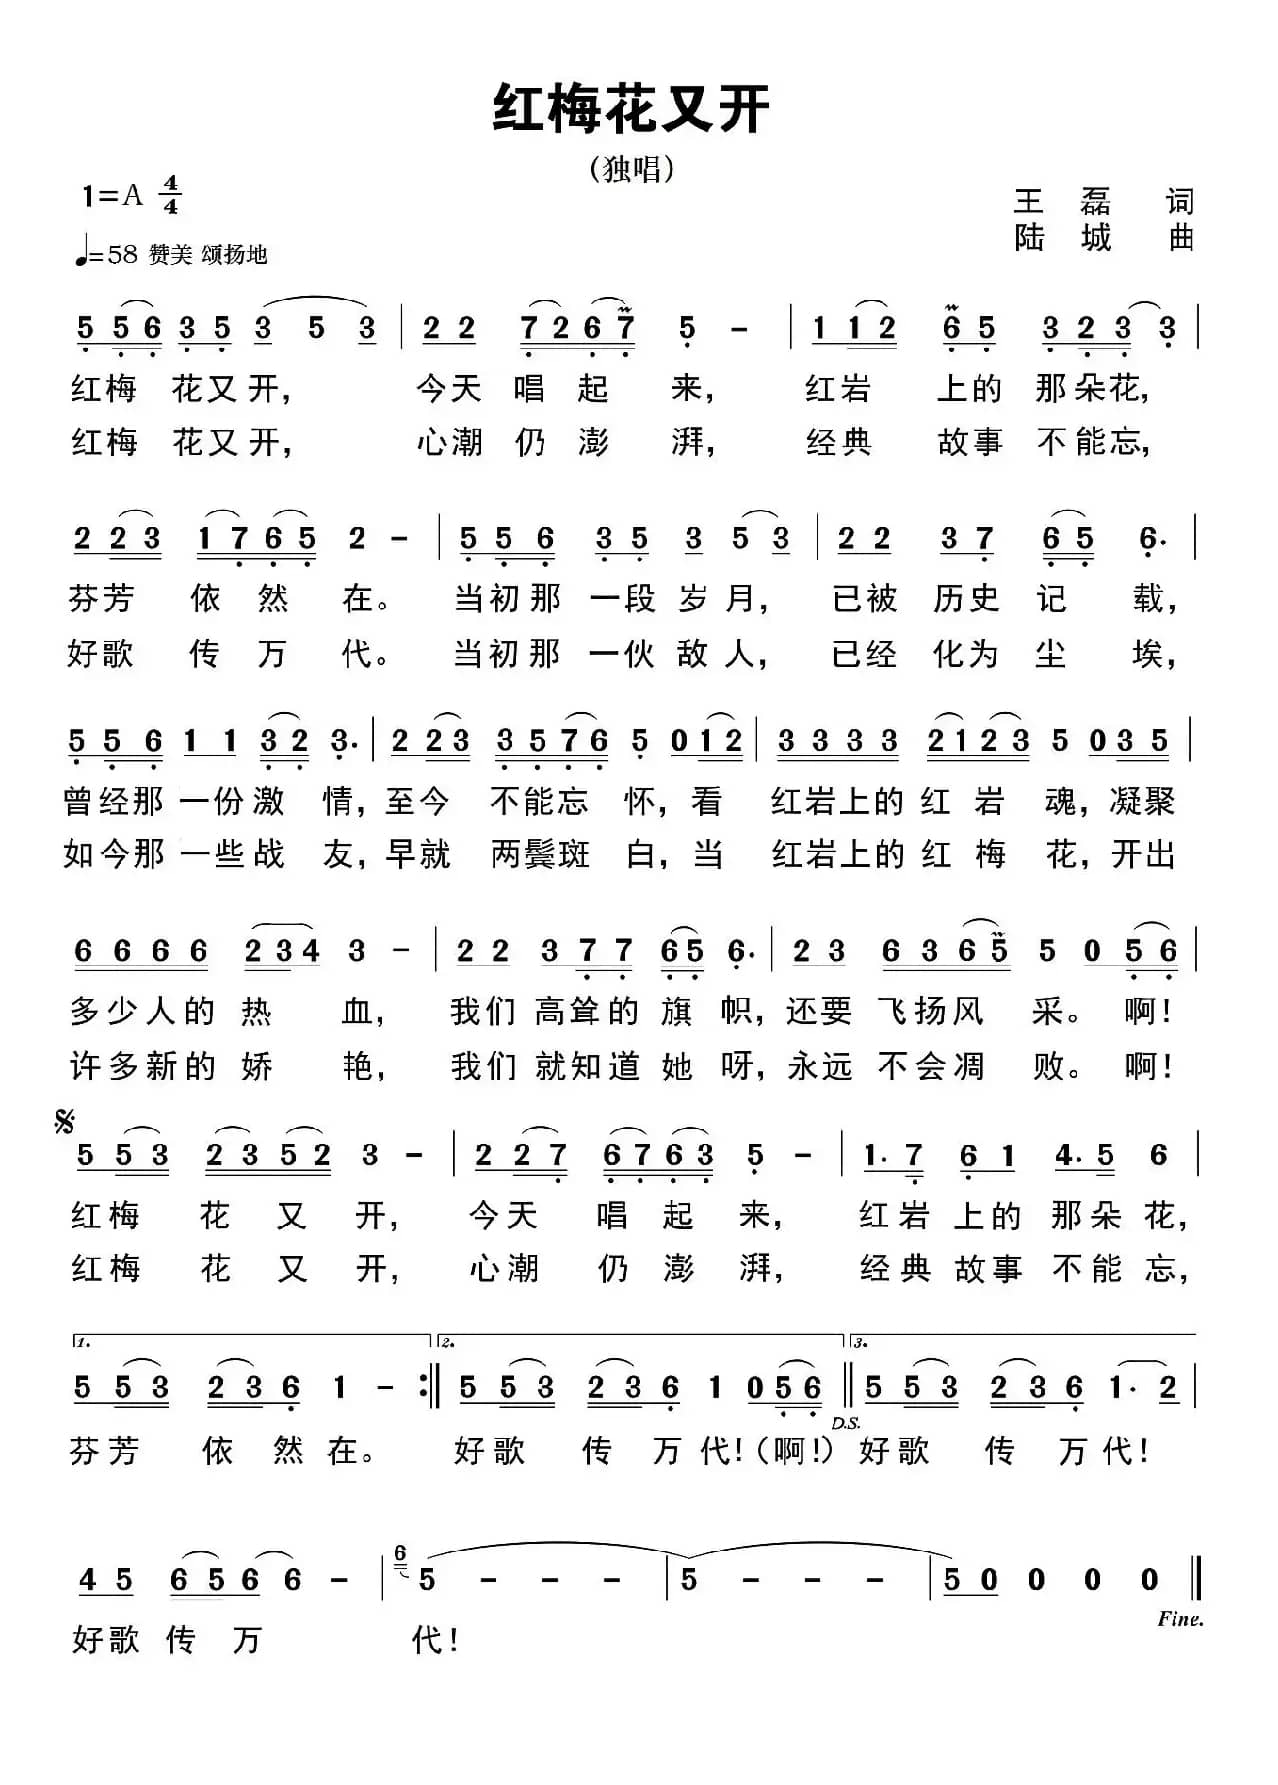 红梅花又开
（独唱）
1=A 4/4
王 磊 词
♩=58 赞美 颂扬地
陆 城 曲
5 5 6 3 5 3 5 3 | 2 2 7 2 6 7 5 - | 1 1 2 6 5 3 2 3 3 |
红梅 花又开, 今天 唱 起 来, 红岩 上的 那朵花,
红梅 花又开, 心潮 仍 澎 湃, 经典 故事 不能忘,
2 2 3 1 7 6 5 2 - | 5 5 6 3 5 3 5 3 | 2 2 3 7 6 5 6. |
芬芳 依 然 在。 当初那 一段 岁 月, 已被 历史 记 载,
好歌 传 万 代。 当初那 一伙 敌 人, 已经 化为 尘 埃,
5 5 6 1 1 3 2 3. | 2 2 3 3 5 7 6 5 0 1 2 | 3 3 3 3 2 1 2 3 5 0 3 5 |
曾经那 一份激 情, 至今 不能忘 怀, 看 红岩上的 红 岩 魂, 凝聚
如今那 一些战 友, 早就 两鬓斑 白, 当 红岩上的 红 梅 花, 开出
6 6 6 6 2 3 4 3 - | 2 2 3 7 7 6 5 6. | 2 3 6 3 6 5 5 0 5 6 |
多少人的 热 血, 我们 高耸的 旗 帜, 还要 飞扬风 采。 啊!
许多新的 娇 艳, 我们 就知道 她 呀, 永远 不会凋 败。 啊!
5 5 3 2 3 5 2 3 - | 2 2 7 6 7 6 3 5 - | 1. 7 6 1 4. 5 6 |
红梅 花 又 开, 今天 唱 起 来, 红岩 上的 那朵 花,
红梅 花 又 开, 心潮 仍 澎 湃, 经典 故事 不能 忘,
1. 2. 3.
5 5 3 2 3 6 1 - :‖ 5 5 3 2 3 6 1 0 5 6 ‖ 5 5 3 2 3 6 1. 2 |
D.S.
芬芳 依 然 在。 好歌 传 万 代! (啊!) 好歌 传 万 代!
4 5 6 5 6 6 - | 6 5 - - - | 5 - - - | 5 0 0 0 0 ‖
Fine.
好歌 传 万 代!